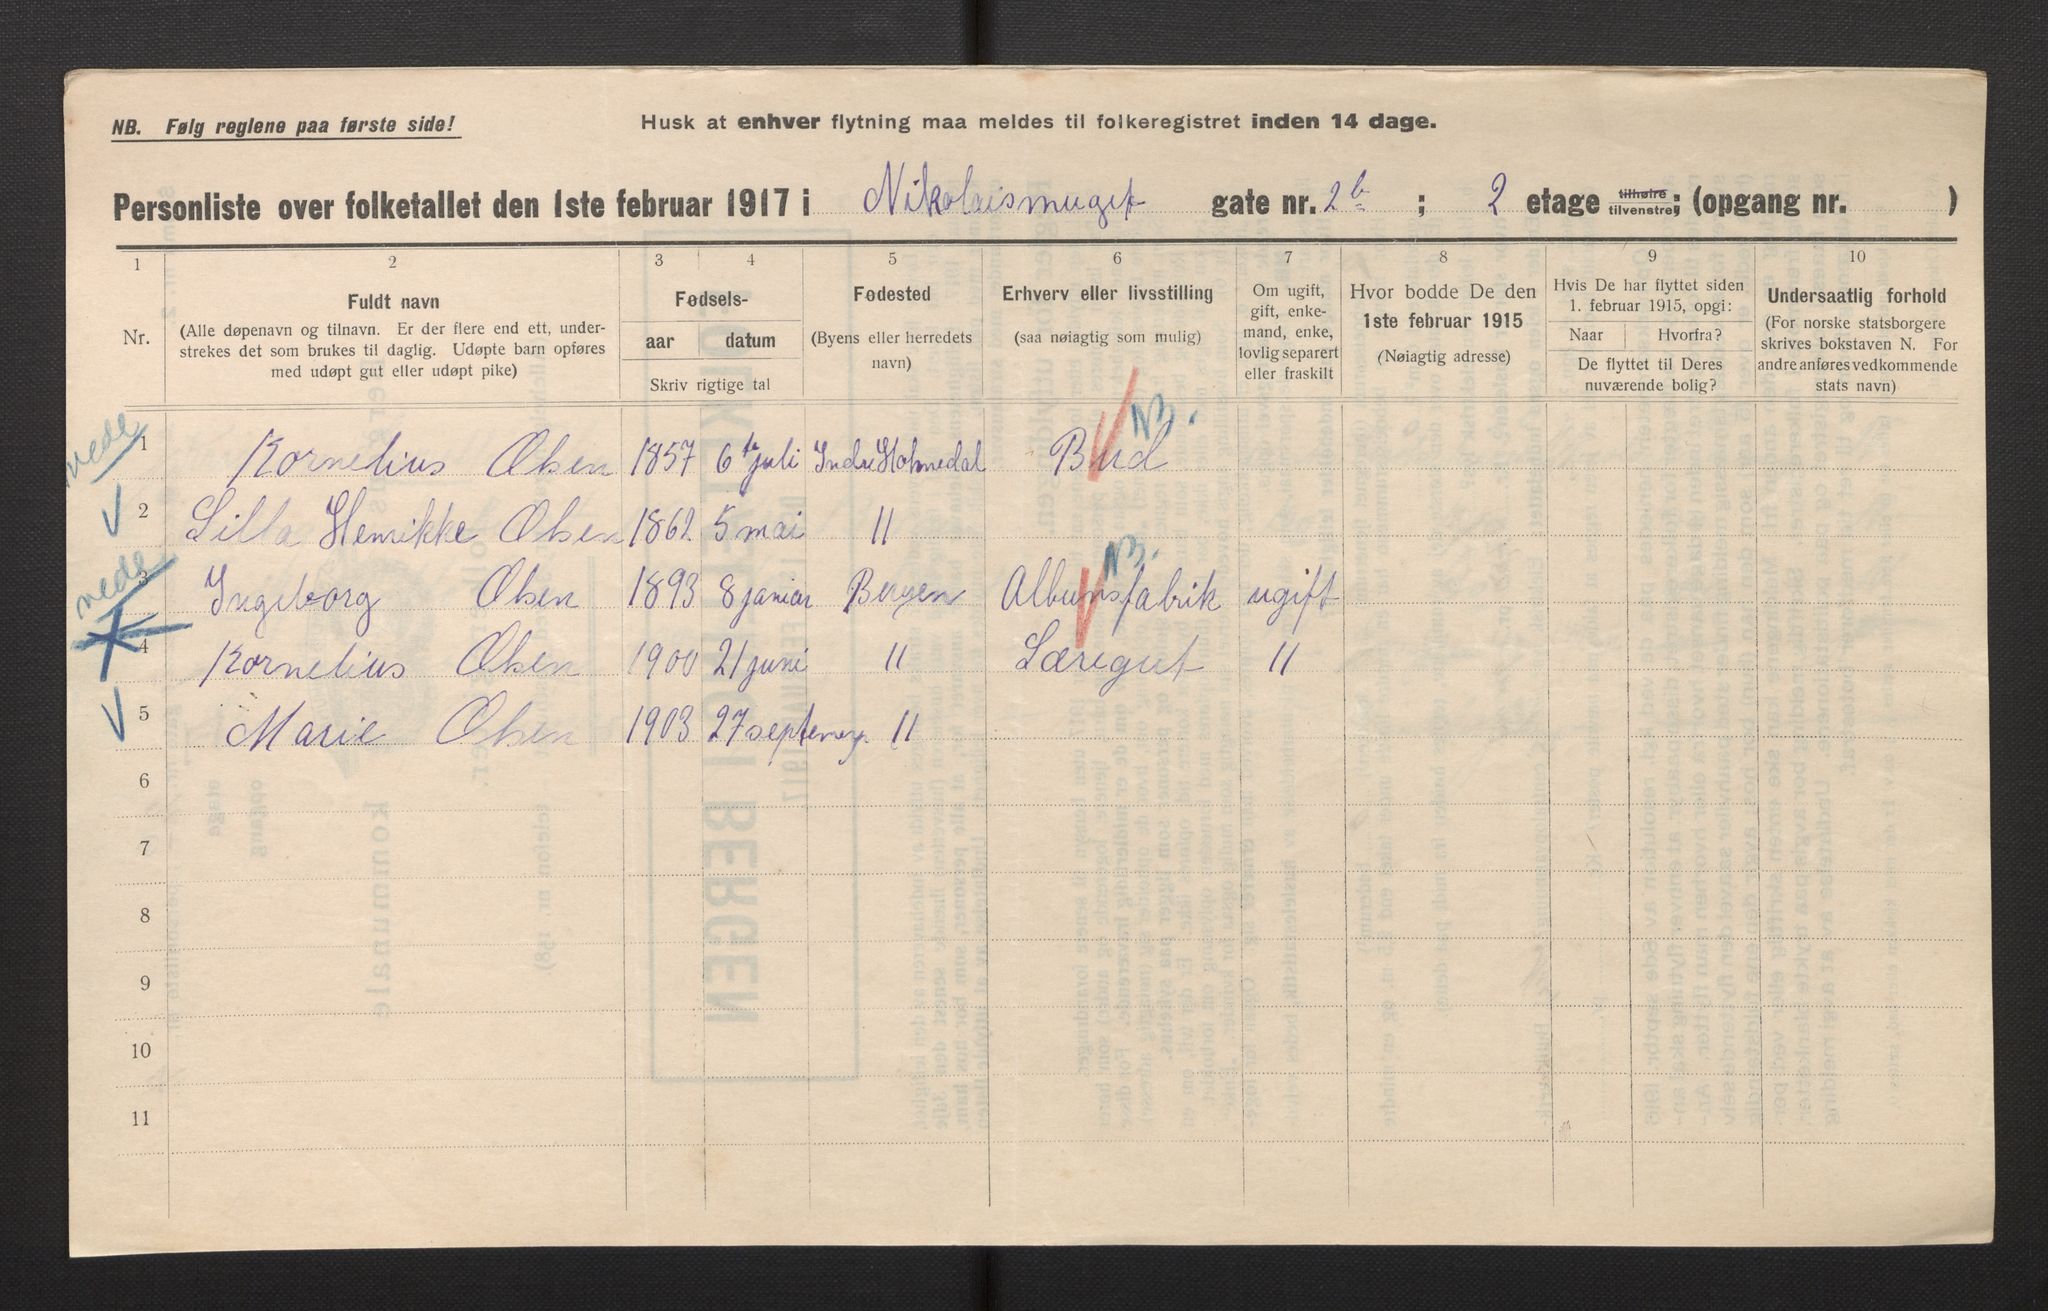 NB. Følg reglene paa første side!
Husk at enhver flytning maa meldes til folkeregistret inden 14 dage.
Personliste over folketallet den 1ste februar 1917 i Nikolaismuget gate nr. 2b ; 2 etage tilhøire tilvenstre; (opgang nr. )
1 2 3 4 5 6 7 8 9 10
Nr.
Fuldt navn
(Alle døpenavn og tilnavn. Er der flere end ett, under-
strekes det som brukes til daglig. Udøpte barn opføres
med udøpt gut eller udøpt pike)
Fødsels-
aar datum
Skriv rigtige tal
Fødested
(Byens eller herredets
navn)
Erhverv eller livsstilling
(saa nøiagtig som mulig)
Om ugift,
gift, enke-
mand, enke,
lovlig separert
eller fraskilt
Hvor bodde De den
1ste februar 1915
(Nøiagtig adresse)
Hvis De har flyttet siden
1. februar 1915, opgi:
Naar Hvorfra?
De flyttet til Deres
nuværende bolig?
Undersaatlig forhold
(For norske statsborgere
skrives bokstaven N. For
andre anføres vedkommende
stats navn)
nede
NB.
1 Kornelius Olsen 1857 6te juli Indre Holmedal Bud
2 Lilla Henrikke Olsen 1862 5 mai "
nede
NB.
3 Ingeborg Olsen 1893 8 januar Bergen Albumsfabrik ugift
4 Kornelius Olsen 1900 21 juni " Læregut "
5 Marie Olsen 1903 27 "
6
7
8
9
10
11